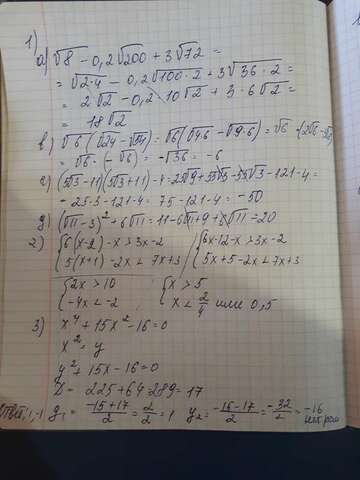 1)
а) √8 - 0,2√200 + 3√72 =
= √2·4 - 0,2√100·2 + 3√36·2 =
= 2√2 - 0,2·10√2 + 3·6√2 =
= 18√2
в) √6 (√24 - √54) = √6(√4·6 - √9·6) = √6 · (2√6 - 3√6)
= √6 · (-√6) = -√36 = -6
г) (5√3 - 11)(5√3 + 11) - 4 = 25√9 + 55√3 - 55√3 - 121 - 4 =
= 25·3 - 121 - 4 = 75 - 121 - 4 = -50
д) (√11 - 3)² + 6√11 = 11 - 6√11 + 9 + 6√11 = 20
2) {6(x-2) - x > 3x - 2 {6x - 12 - x > 3x - 2
{5(x+1) - 2x < 7x + 3 {5x + 5 - 2x < 7x + 3
{2x > 10 {x > 5
{-4x < -2 {x < 2/4 или 0,5
3) x⁴ + 15x² - 16 = 0
x² = y
y² + 15x - 16 = 0
D = 225 + 64 = 289 = 17
Ответ: 1, -1 y₁ = -15+17/2 = 2/2 = 1 y₂ = -15-17/2 = -32/2 = -16